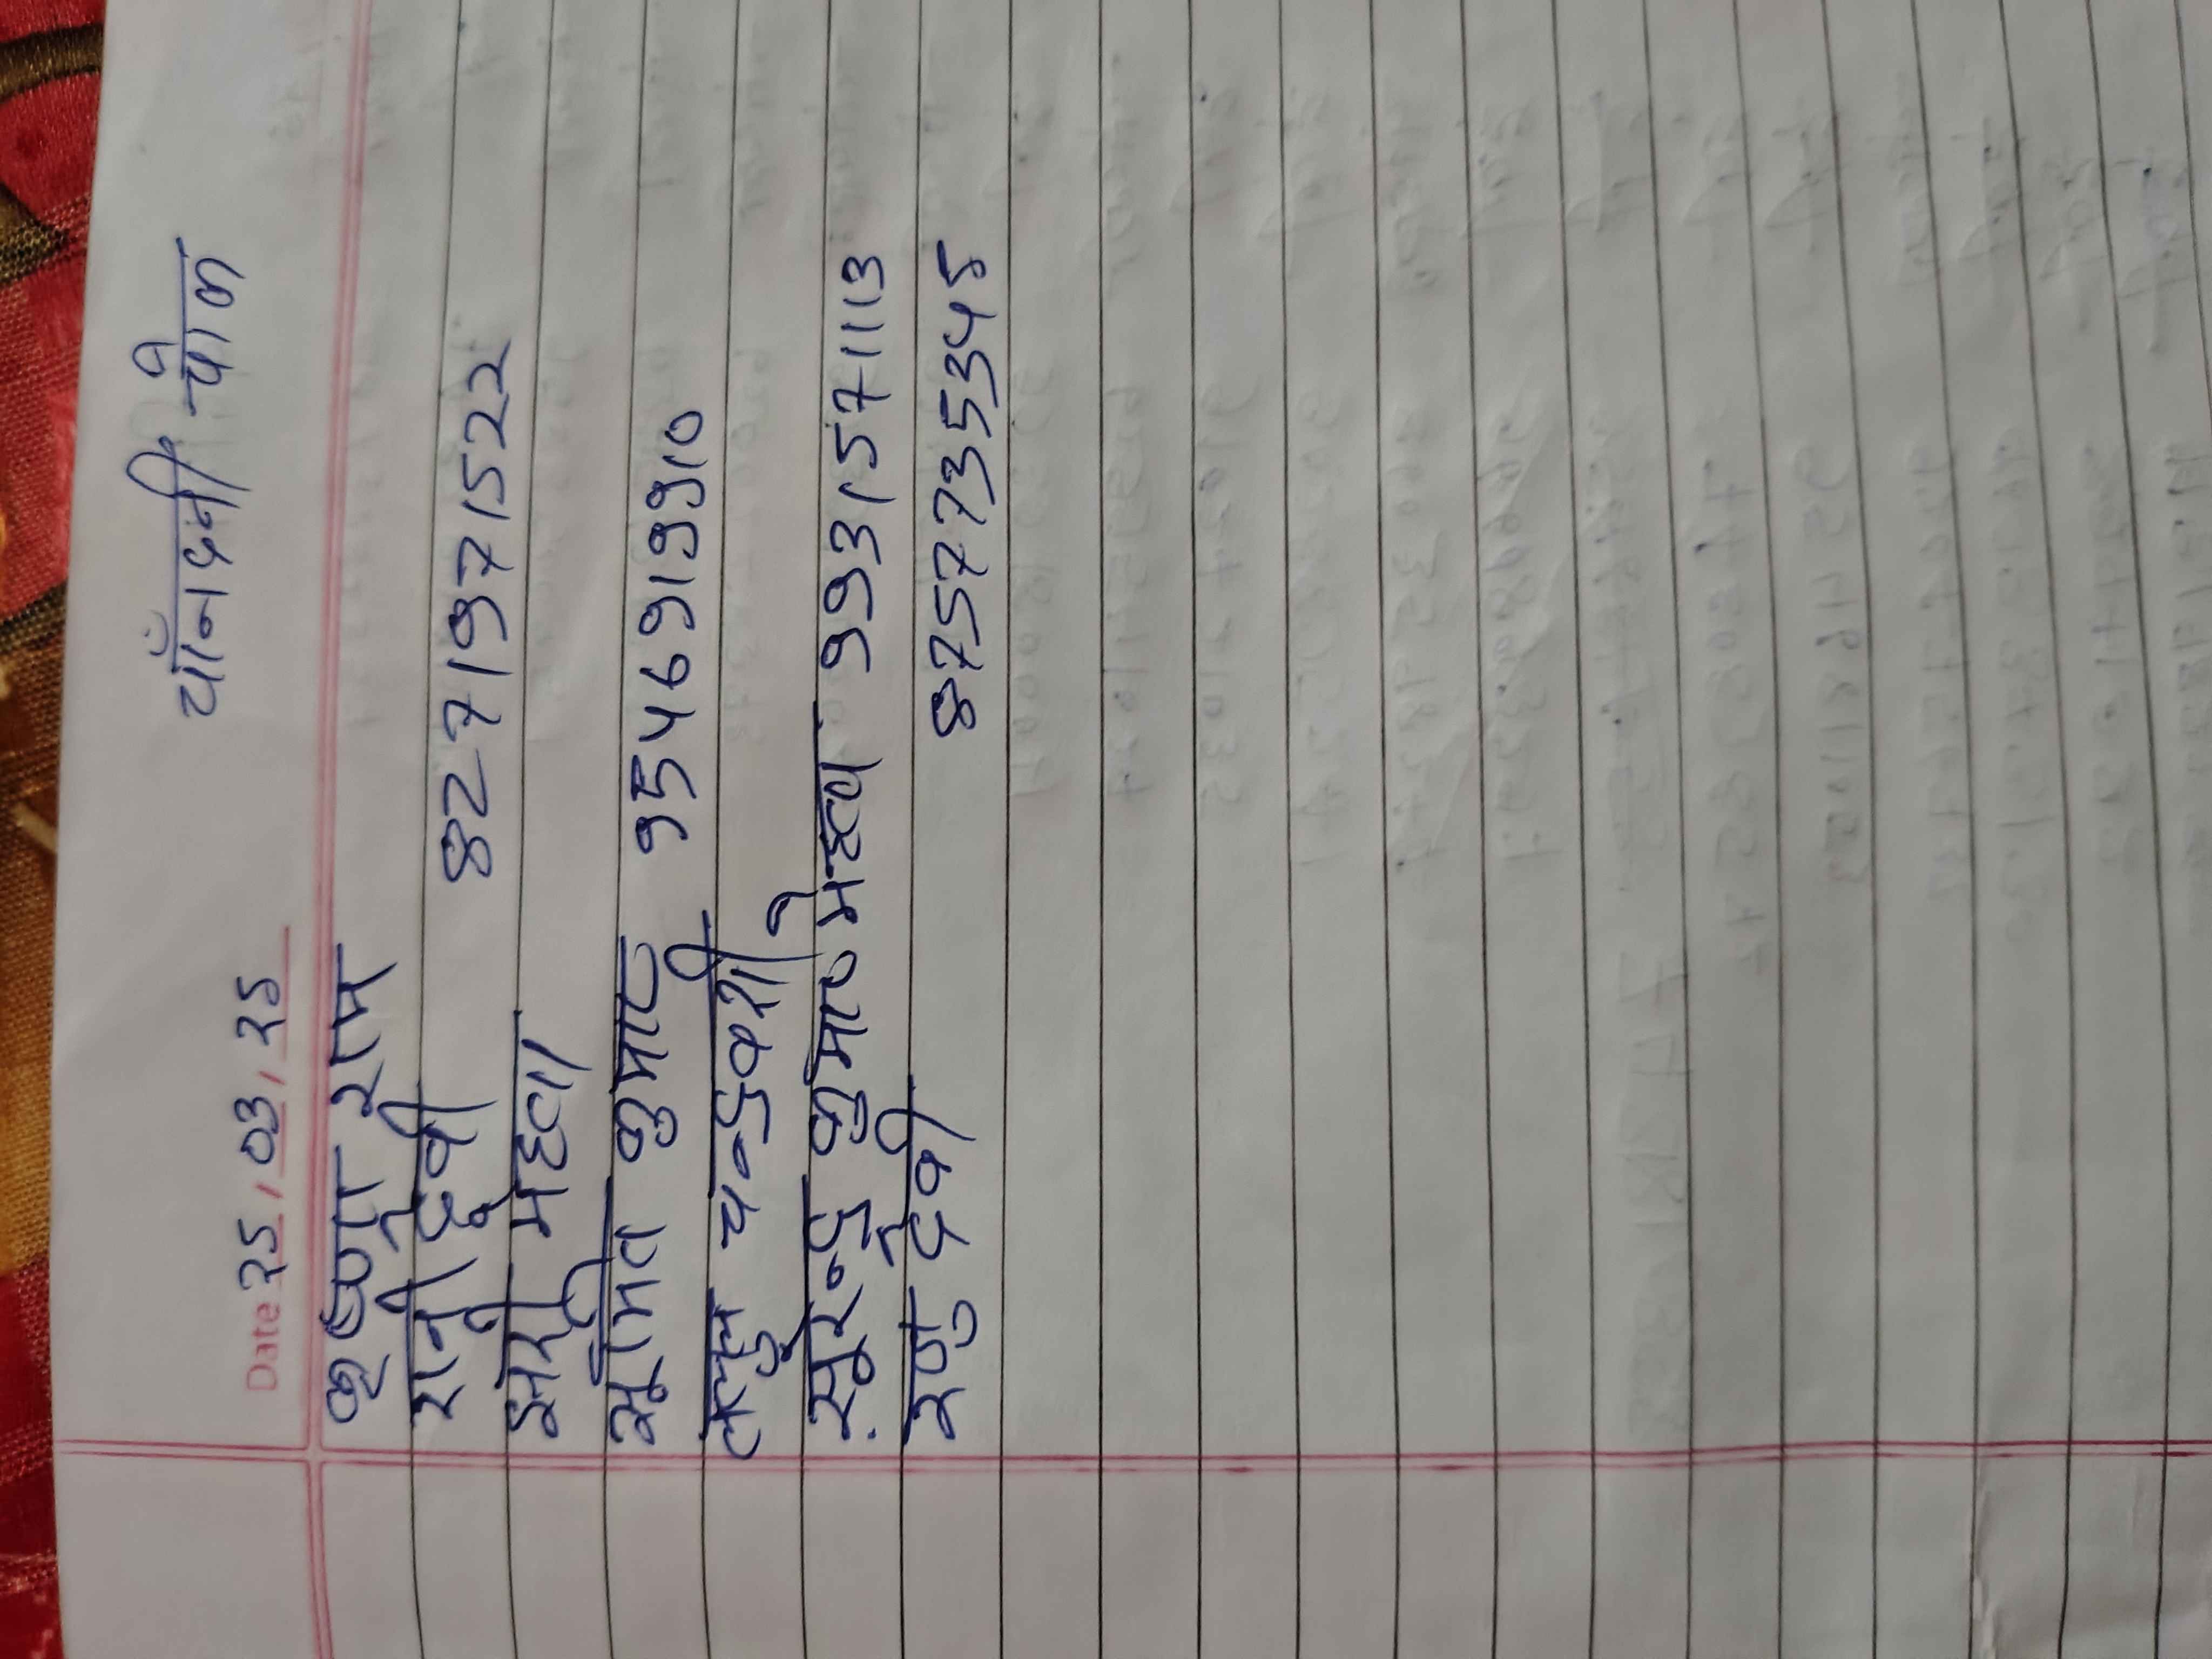 चाँनदनी चौक
Date 25.03.25
कृष्णा राम
रानी देवी 8271971522
महता
सुमित कुमार 9546919910
चन्द्रवंशी
सुरेन्द्र कुमार महता 9931571113
रेणु देवी 8757735345